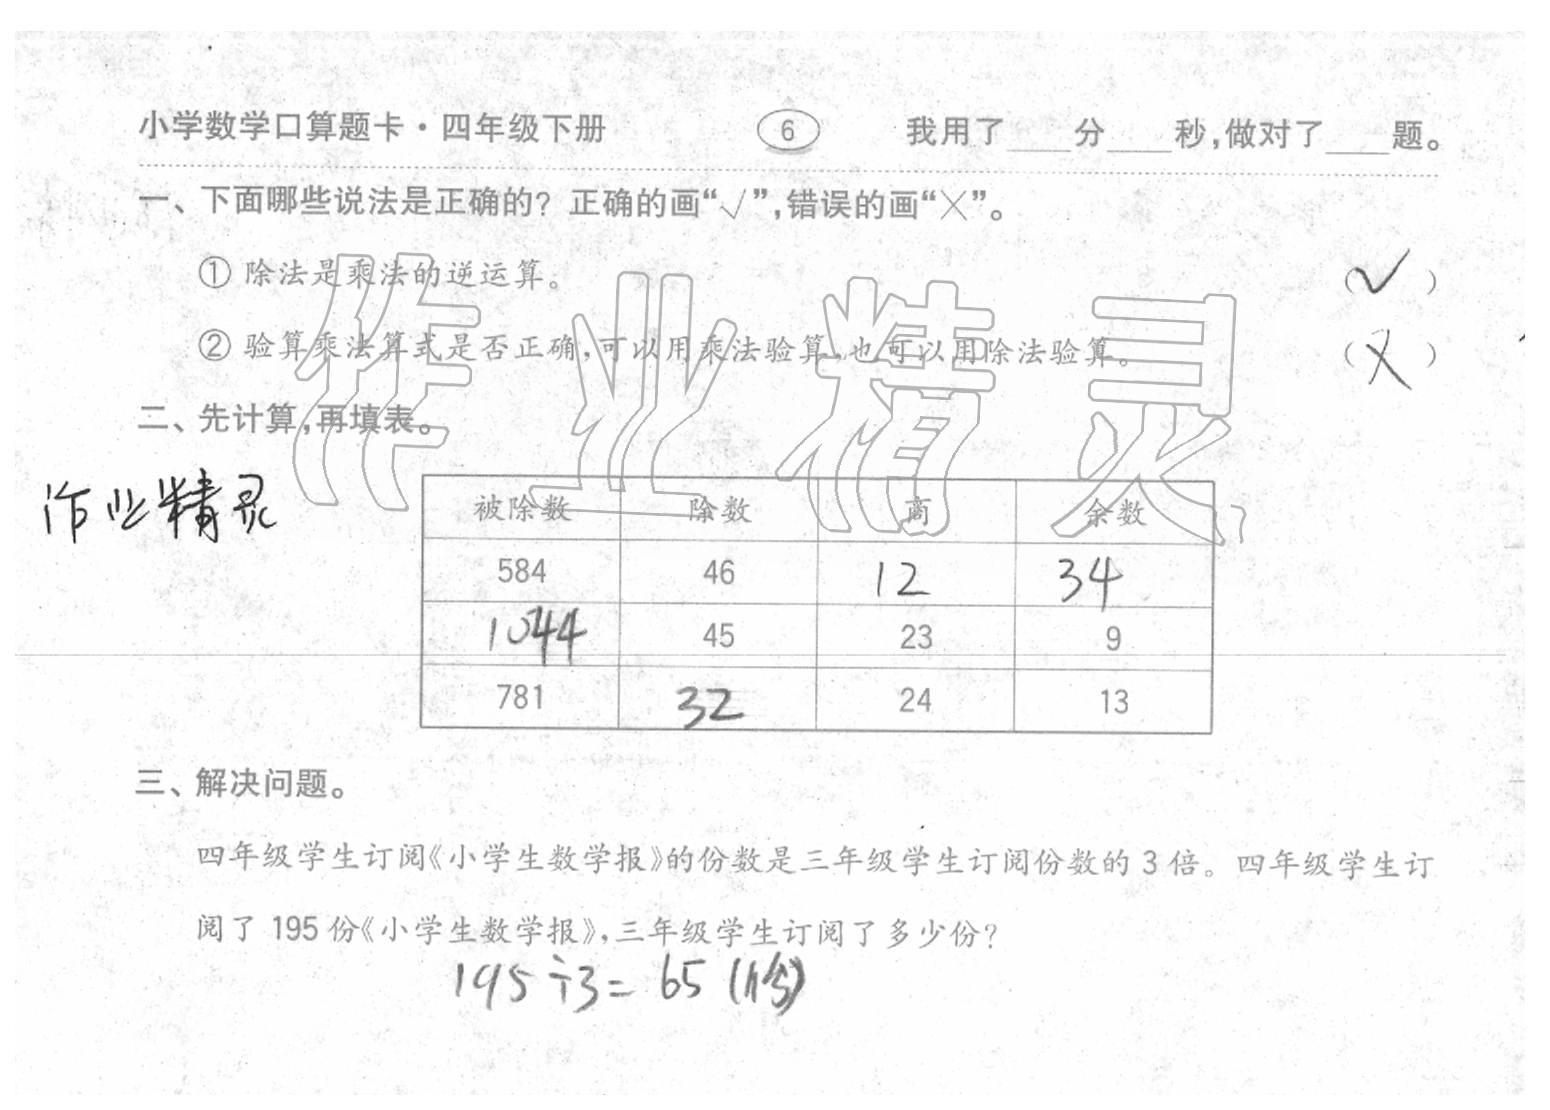 小学数学口算题卡·四年级下册 6 我用了____分____秒,做对了____题。
一、下面哪些说法是正确的?正确的画“√”,错误的画“╳”。
① 除法是乘法的逆运算。 (√)
② 验算乘法算式是否正确,可以用乘法验算,也可以用除法验算。 (╳)
二、先计算,再填表。
作业精灵
作业精灵
被除数 除数 商 余数
584 46 12 34
1044 45 23 9
781 32 24 13
三、解决问题。
四年级学生订阅《小学生数学报》的份数是三年级学生订阅份数的 3 倍。四年级学生订
阅了 195 份《小学生数学报》,三年级学生订阅了多少份?
195÷3=65(份)